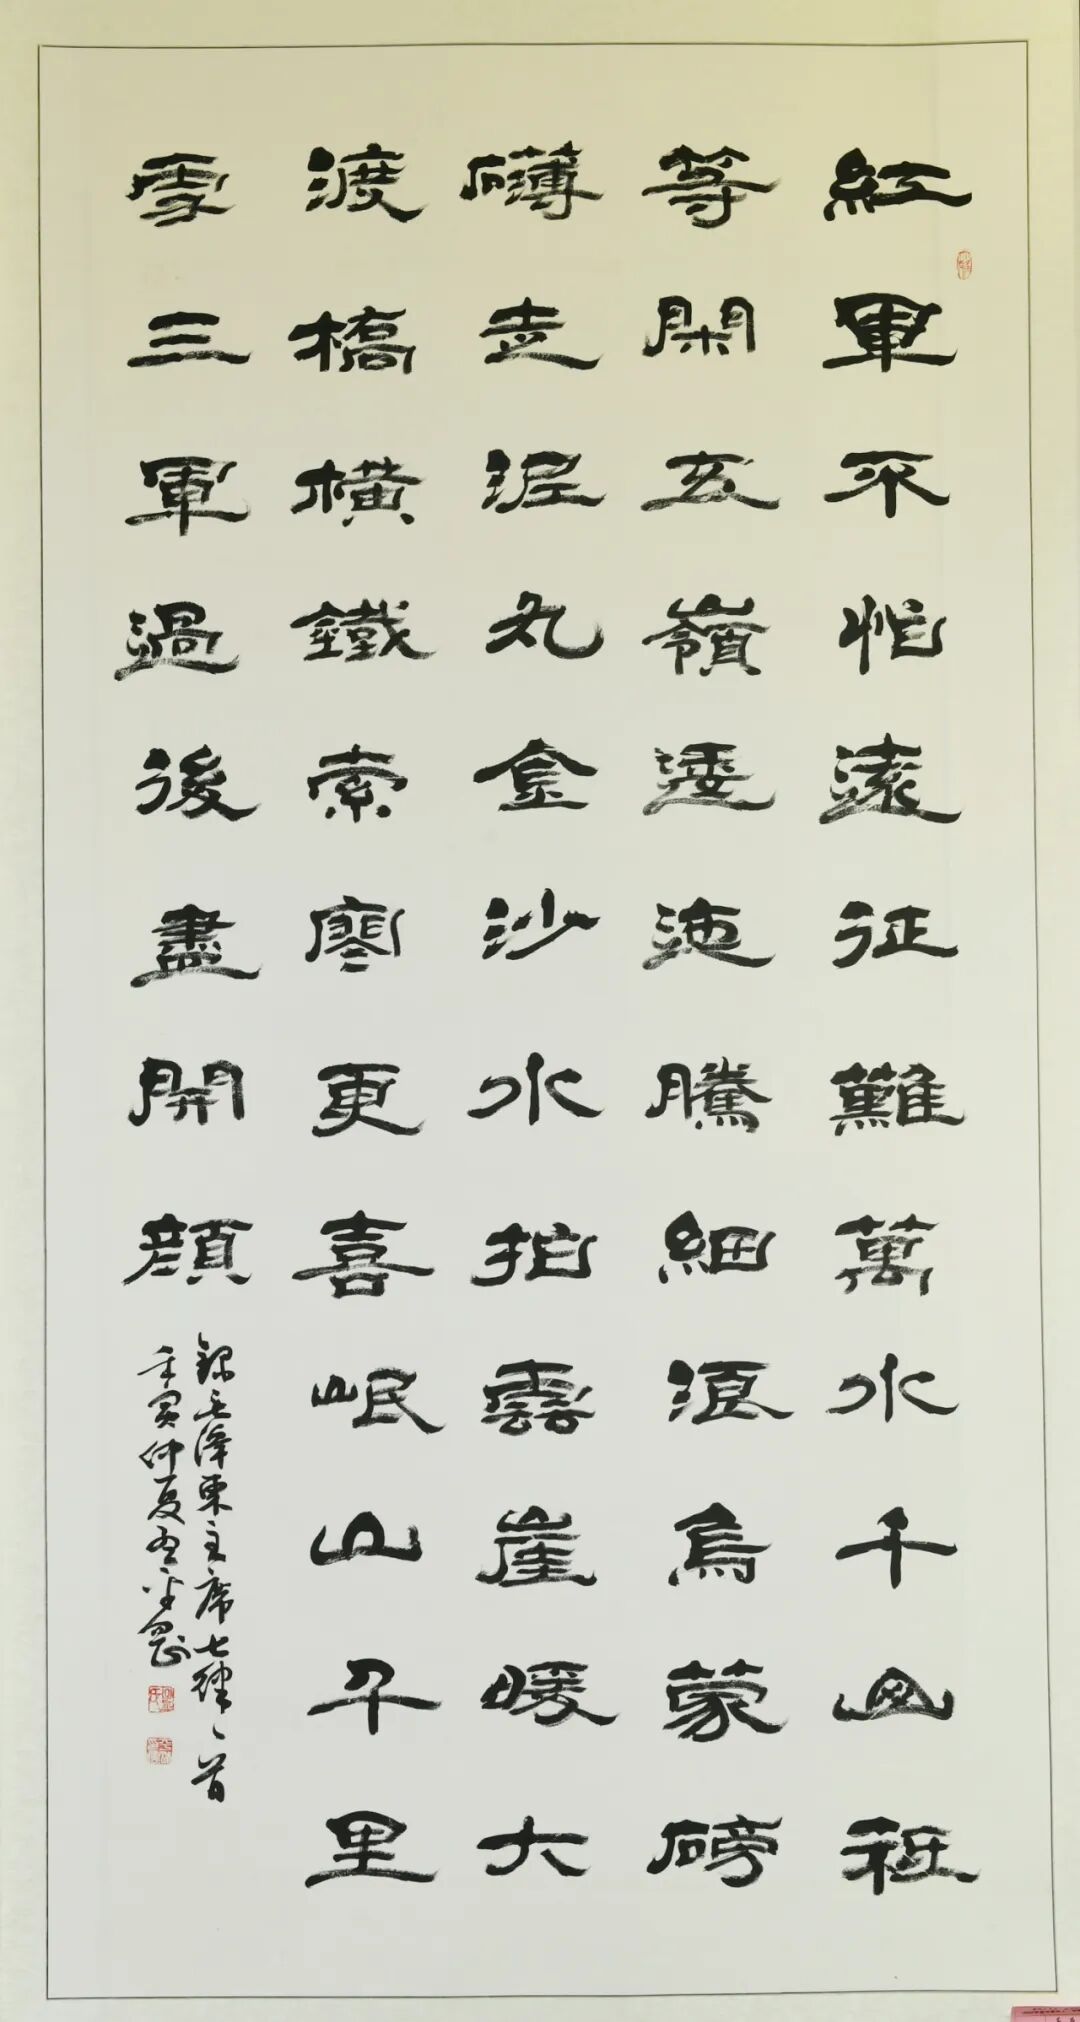 紅軍不怕遠征難萬水千山祗
等閑五嶺逶迤騰細浪烏蒙磅
礴走泥丸金沙水拍雲崖暖大
渡橋橫鐵索寒更喜岷山千里
雪三軍過後盡開顏
錄毛澤東主席七律一首
壬寅仲夏